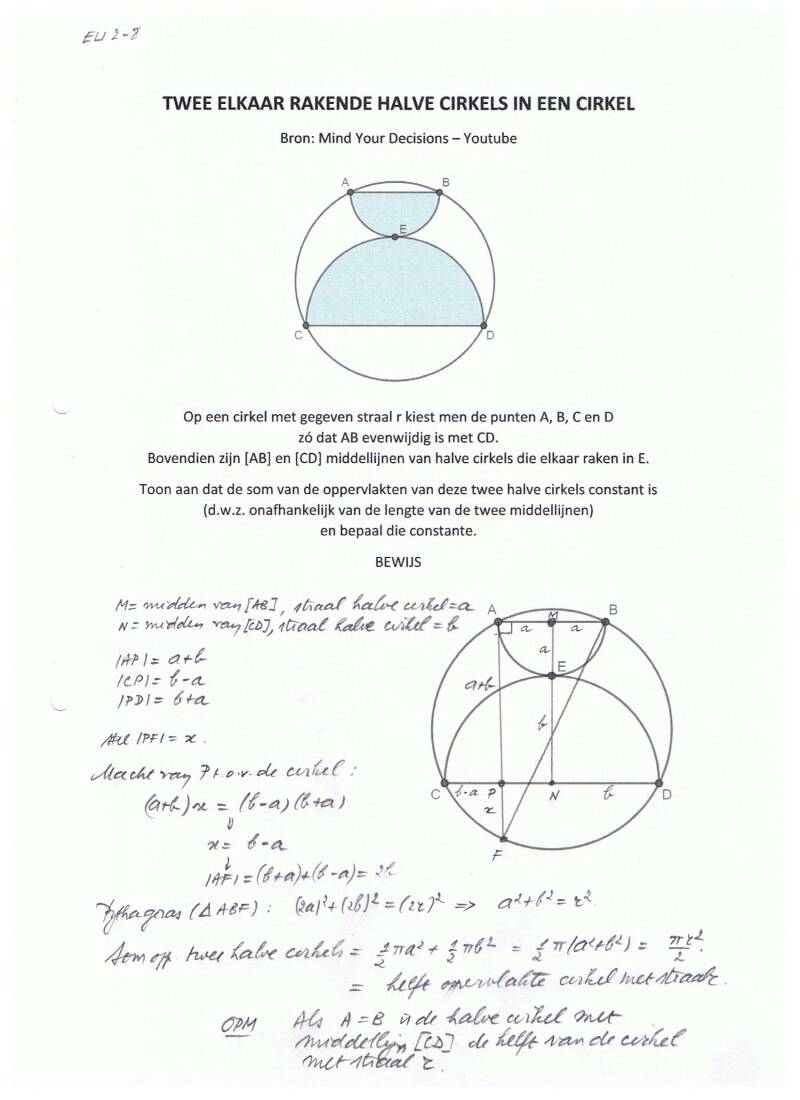 EU 2-8
TWEE ELKAAR RAKENDE HALVE CIRKELS IN EEN CIRKEL
Bron: Mind Your Decisions – Youtube
A B
E
C D
Op een cirkel met gegeven straal r kiest men de punten A, B, C en D
zó dat AB evenwijdig is met CD.
Bovendien zijn [AB] en [CD] middellijnen van halve cirkels die elkaar raken in E.
Toon aan dat de som van de oppervlakten van deze twee halve cirkels constant is
(d.w.z. onafhankelijk van de lengte van de twee middellijnen)
en bepaal die constante.
BEWIJS
M= midden van [AB], straal halve cirkel = a
N = midden van [CD], straal halve cirkel = b
|AP| = a+b
|CP| = b-a
|PD| = b+a
Stel |PF| = x.
Macht van P t.o.v. de cirkel:
(a+b)x = (b-a)(b+a)
⇓
x = b-a
↓
|AF| = (b+a)+(b-a) = 2b
A M B
a a
a
E
a+b
b
C b-a P N b D
x
F
Pythagoras (ΔABF): (2a)²+(2b)² = (2r)² => a²+b² = r²
Som opp. twee halve cirkels = ½πa² + ½πb² = ½π(a²+b²) = πr²/2.
= helft oppervlakte cirkel met straal r.
OPM Als A=B is de halve cirkel met
middellijn [CD] de helft van de cirkel
met straal r.